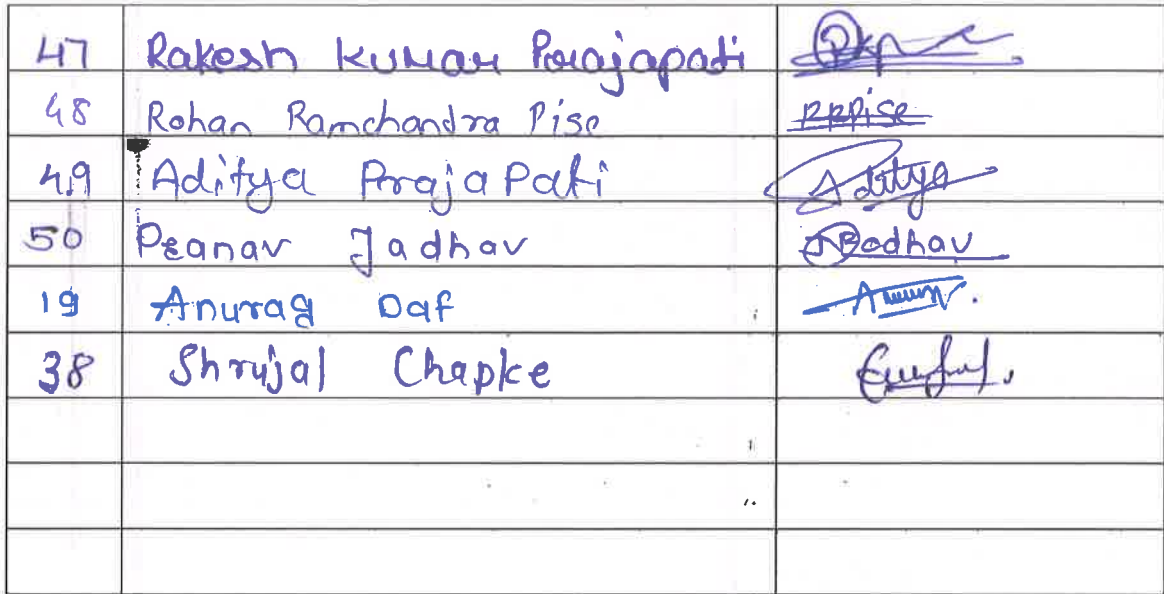 47 Rakesh Kumar Prajapati
48 Rohan Ramchandra Pise RRPise
49 Aditya Prajapati Aditya
50 Pranav Jadhav Jadhav
19 Anurag Daf
38 Shrujal Chapke